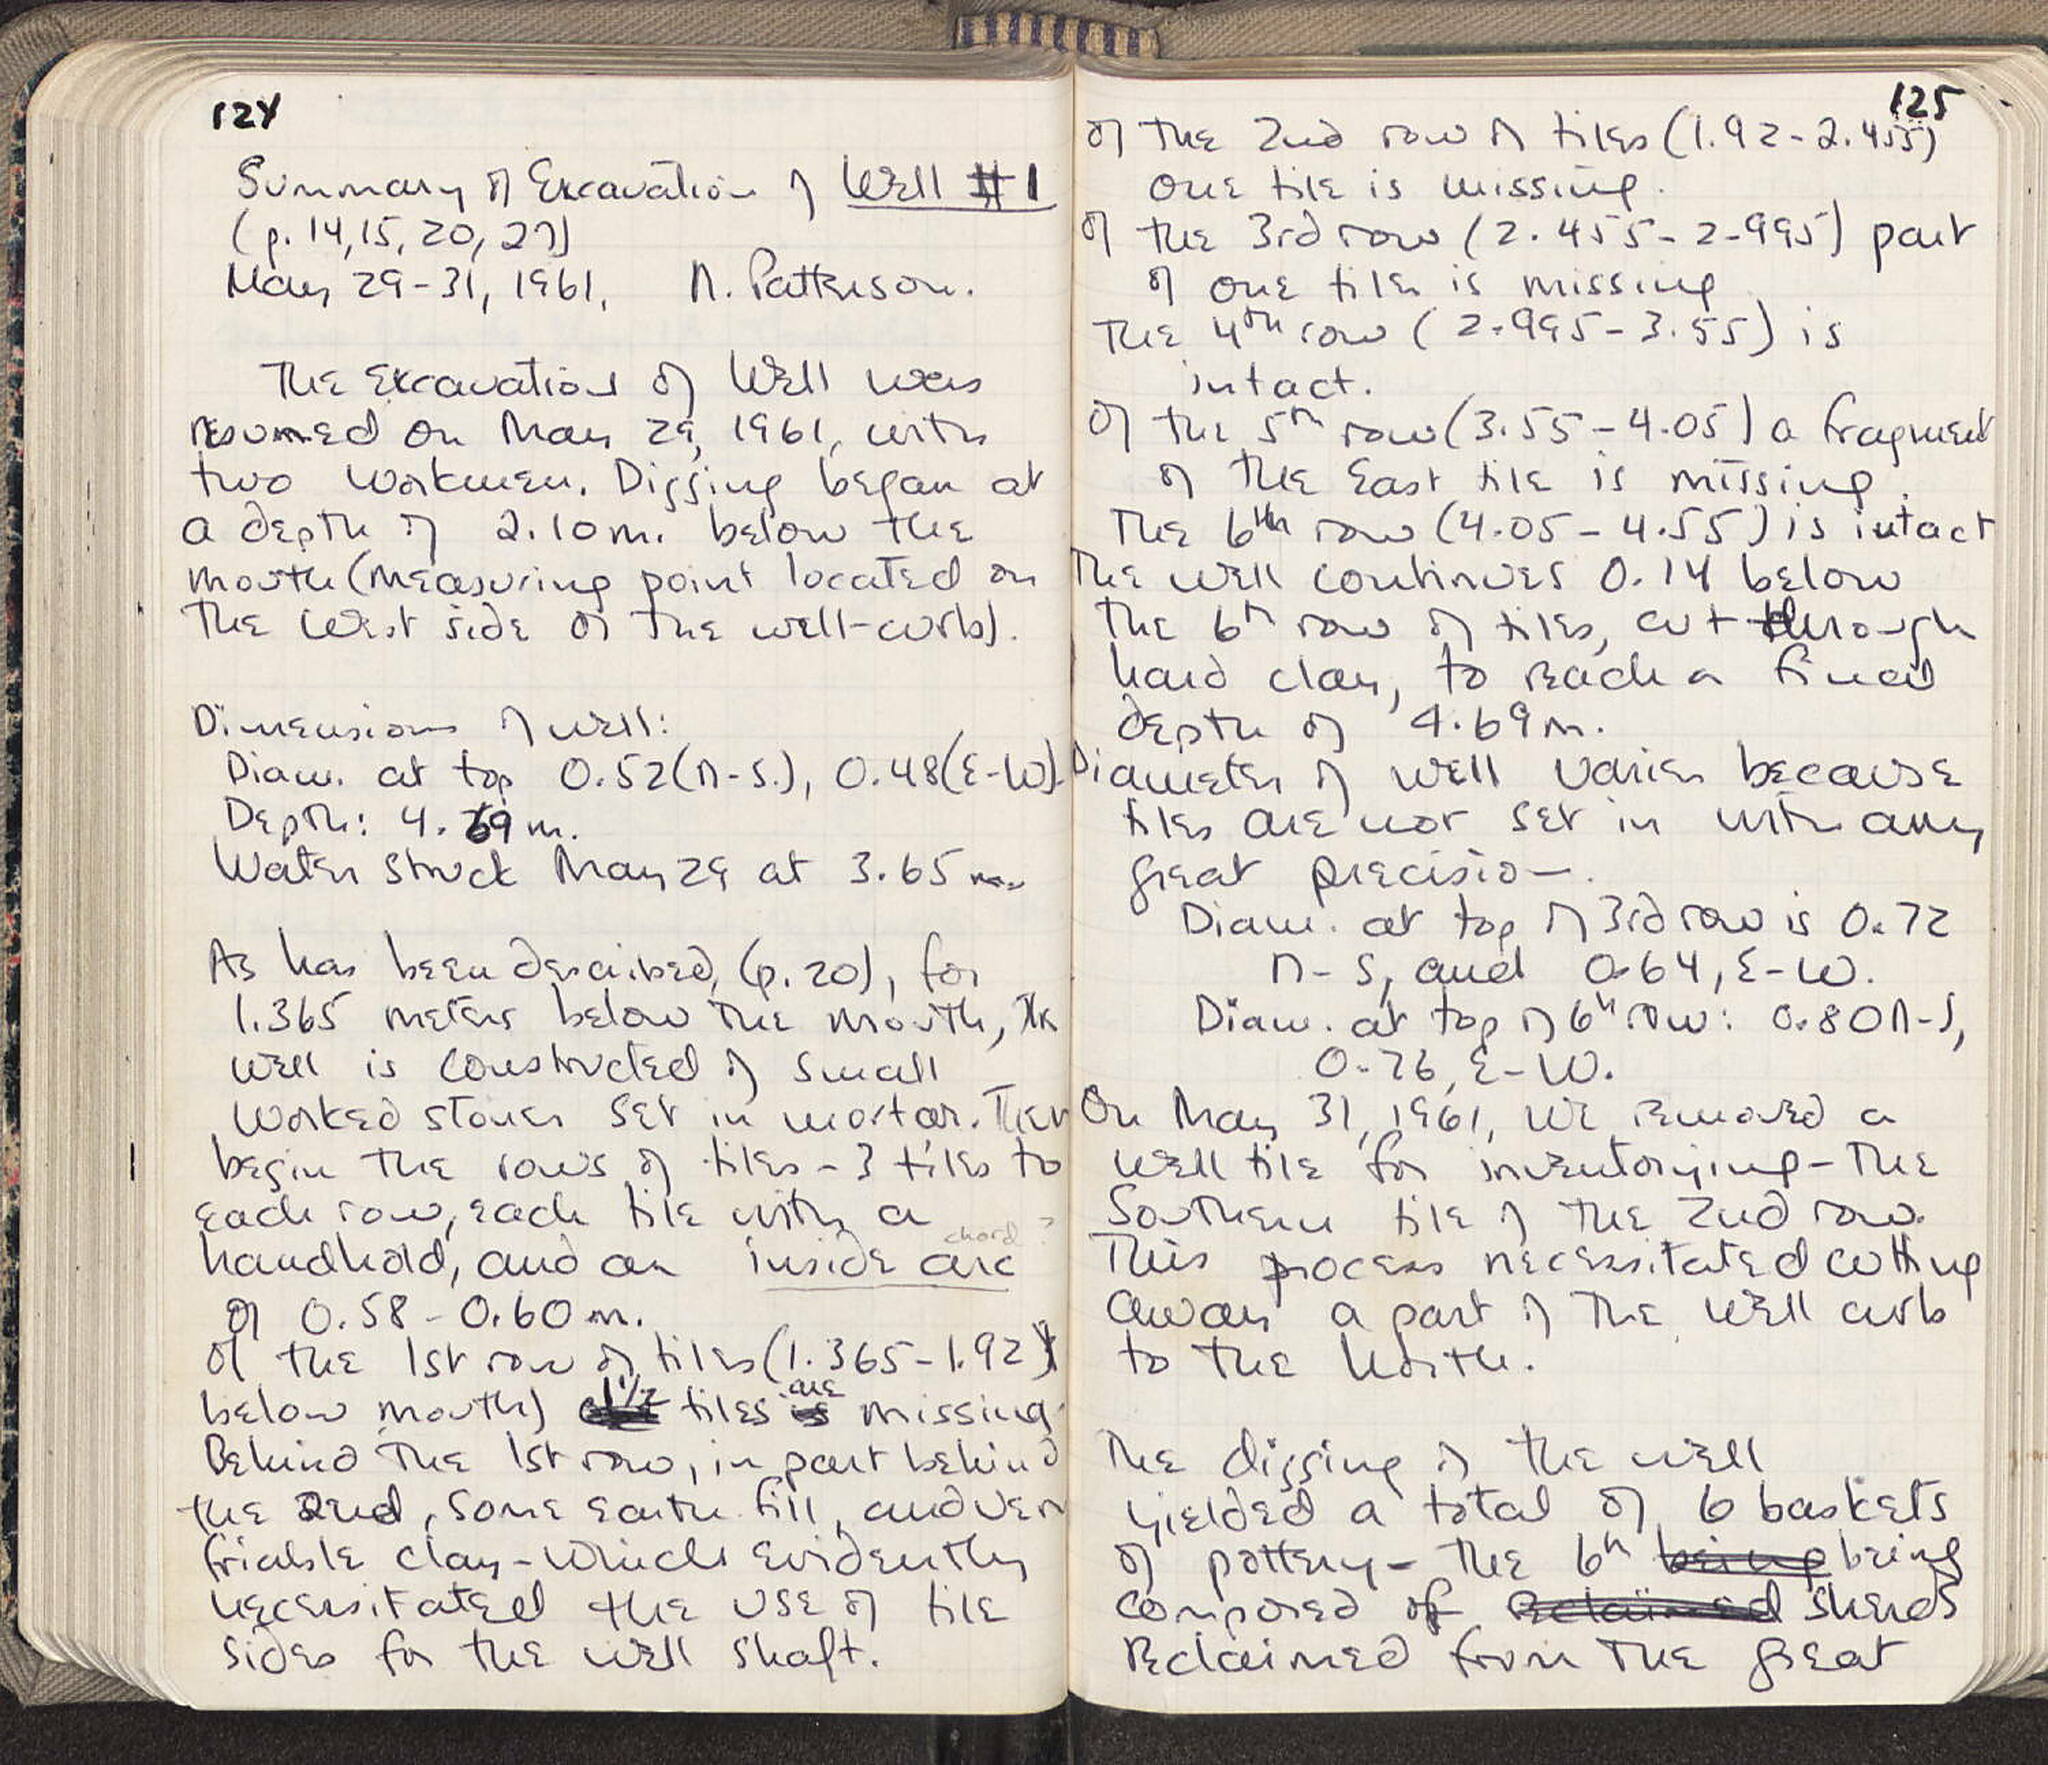 124
Summary of Excavation of Well #1
(p. 14, 15, 20, 27)
May 29-31, 1961, N. Patterson.
The Excavation of Well was
resumed on May 29, 1961, with
two workmen. Digging began at
a depth of 2.10 m. below the
mouth (measuring point located on
the West side of the well-curb).
Dimensions of well:
Diam. at top 0.52 (N-S.), 0.48 (E-W).
Depth: 4.69 m.
Water struck May 29 at 3.65 m.
As has been described, (p. 20), for
1.365 meters below the mouth, the
well is constructed of small
worked stones set in mortar. Then
begin the rows of tiles - 3 tiles to
each row, each tile with a
handhold, and an inside arc
chord?
of 0.58 - 0.60 m.
Of the 1st row of tiles (1.365-1.92)
below mouth) 1 1/2 tiles is are missing.
Behind the 1st row, in part behind
the 2nd, some earth fill, and very
friable clay - which evidently
necessitated the use of tile
sides for the well shaft.
125
Of the 2nd row of tiles (1.92-2.455)
one tile is missing.
Of the 3rd row (2.455-2.995) part
of one tile is missing
The 4th row (2.995-3.55) is
intact.
Of the 5th row (3.55-4.05) a fragment
of the East tile is missing.
The 6th row (4.05-4.55) is intact
The well continues 0.14 below
the 6th row of tiles, cut through
hard clay, to reach a final
depth of 4.69 m.
Diameter of well varies because
tiles are not set in with any
great precision.
Diam. at top of 3rd row is 0.72
N-S, and 0.64, E-W.
Diam. at top of 6th row: 0.80 N-S,
0.76, E-W.
On May 31, 1961, we removed a
well tile for inventorying - the
Southern tile of the 2nd row.
This process necessitated cutting
away a part of the well curb
to the North.
The digging of the well
yielded a total of 6 baskets
of pottery - the 6th being being
composed of reclaimed sherds
reclaimed from the great